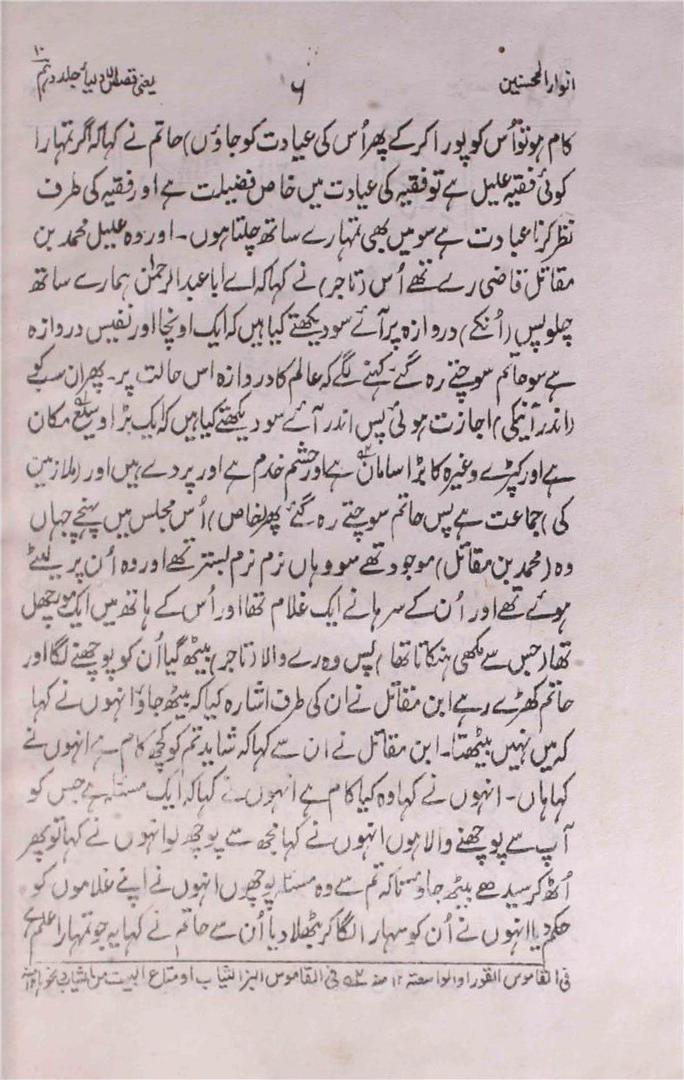 انوار المحسنین ۶ یعنی قصص الاولیاء جلد دہم ۱۰
کام ہو تو اُس کو پورا کر کے پھر اُس کی عیادت کو جاؤں) حاتم نے کہا کہ اگر تمہارا
کوئی فقیہ علیل ہے تو فقیہ کی عیادت میں خاص فضیلت ہے اور فقیہ کی طرف
نظر کرنا عبادت ہے سو میں بھی تمہارے ساتھ چلتا ہوں۔ اور وہ علیل محمد بن
مقاتل قاضی رے تھے اُس (تاجر) نے کہا کہ اے ابا عبد الرحمٰن ہمارے ساتھ
چلو پس (اُنکے) دروازہ پر آئے سو دیکھتے کیا ہیں کہ ایک اونچا اور نفیس دروازہ
ہے سو حاتم سوچتے رہ گئے۔ کہنے لگے کہ عالم کا دروازہ اس حالت پر۔ پھر ان سب کو
(اندر آنیکی) اجازت ہوئی پس اندر آئے سو دیکھتے کیا ہیں کہ ایک بڑا وسیع مکان
ہے اور کپڑے وغیرہ کا بڑا سامان ہے اور حشم خدم ہے اور پردے ہیں اور (ملازمین
کی) جماعت ہے پس حاتم سوچتے رہ گئے پھر (خاص) اُس مجلس میں پہنچے جہاں
وہ (محمد بن مقاتل) موجود تھے سو وہاں نرم نرم بستر تھے اور وہ اُن پر لیٹے
ہوئے تھے اور اُن کے سرہانے ایک غلام تھا اور اُس کے ہاتھ میں ایک مورچھل
تھا (جس سے مکھی ہنکاتا تھا) پس وہ رے والا (تاجر) بیٹھ گیا اُن کو پوچھنے لگا اور
حاتم کھڑے رہے ابن مقاتل نے ان کی طرف اشارہ کیا کہ بیٹھ جاؤ انہوں نے کہا
کہ میں نہیں بیٹھتا۔ ابن مقاتل نے ان سے کہا کہ شاید تم کو کچھ کام ہے انہوں نے
کہا ہاں۔ انہوں نے کہا وہ کیا کام ہے انہوں نے کہا کہ ایک مسئلہ ہے جس کو
آپ سے پوچھنے والا ہوں انہوں نے کہا مجھ سے پوچھ لو انہوں نے کہا تو پھر
اُٹھ کر سیدھے بیٹھ جاؤ تاکہ تم سے وہ مسئلہ پوچھوں انہوں نے اپنے غلاموں کو
حکم دیا انہوں نے اُن کو سہارا لگا کر بٹھلا دیا اُن سے حاتم نے کہا یہ جو تمہارا علم ہے
فی القاموس القوراء الواسعۃ ۱۲ منہ فی القاموس البز الثیاب او متاع البیت من الثیاب و نحوہا ۱۲ منہ